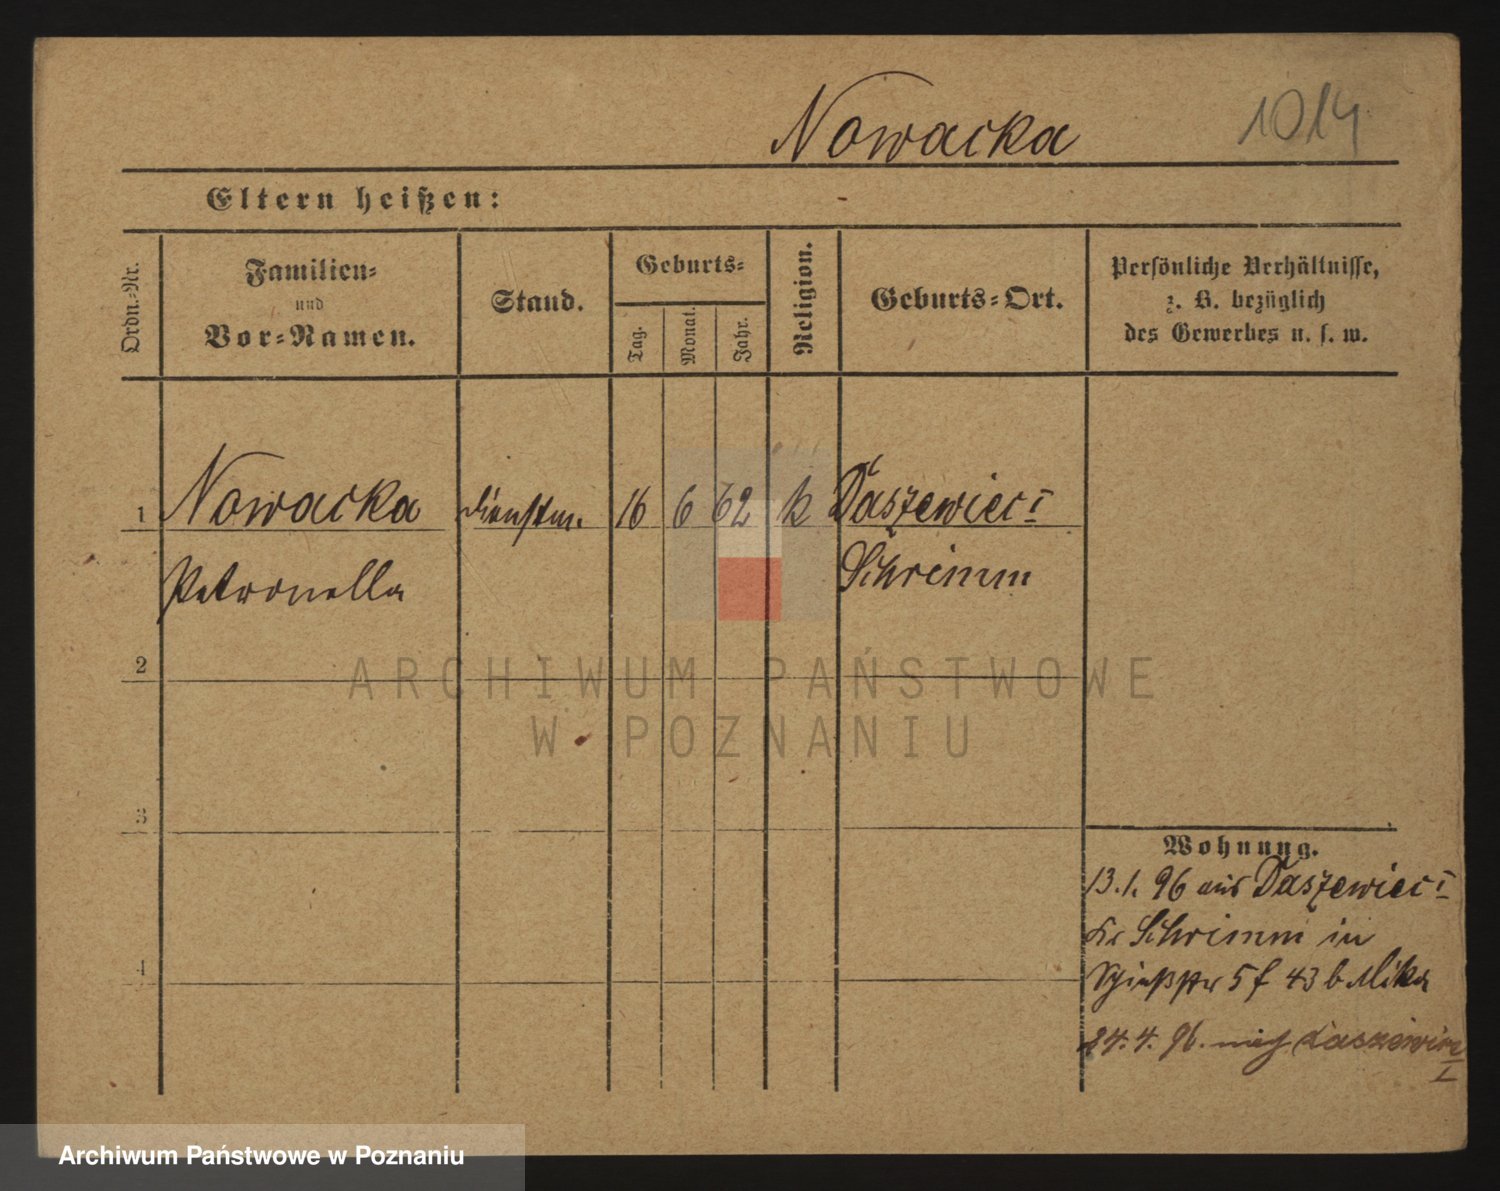 Nowacka
1014
Eltern heißen:
Ordn.-Nr.
Familien-
und
Vor-Namen.
Stand.
Geburts-
Tag.
Monat.
Jahr.
Religion.
Geburts-Ort.
Persönliche Verhältnisse,
z. B. bezüglich
des Gewerbes u. s. w.
1
Nowacka
Petronella
dienstm.
16
6
62
k
Daszewiec I
Schrimm
2
3
4
Wohnung.
13.1. 96 aus Daszewiec I
Kr Schrimm in
5 f 43 b Mika
24. 4. 96. nach Daszewice
I
ARCHIWUM PAŃSTWOWE
W POZNANIU
Archiwum Państwowe w Poznaniu